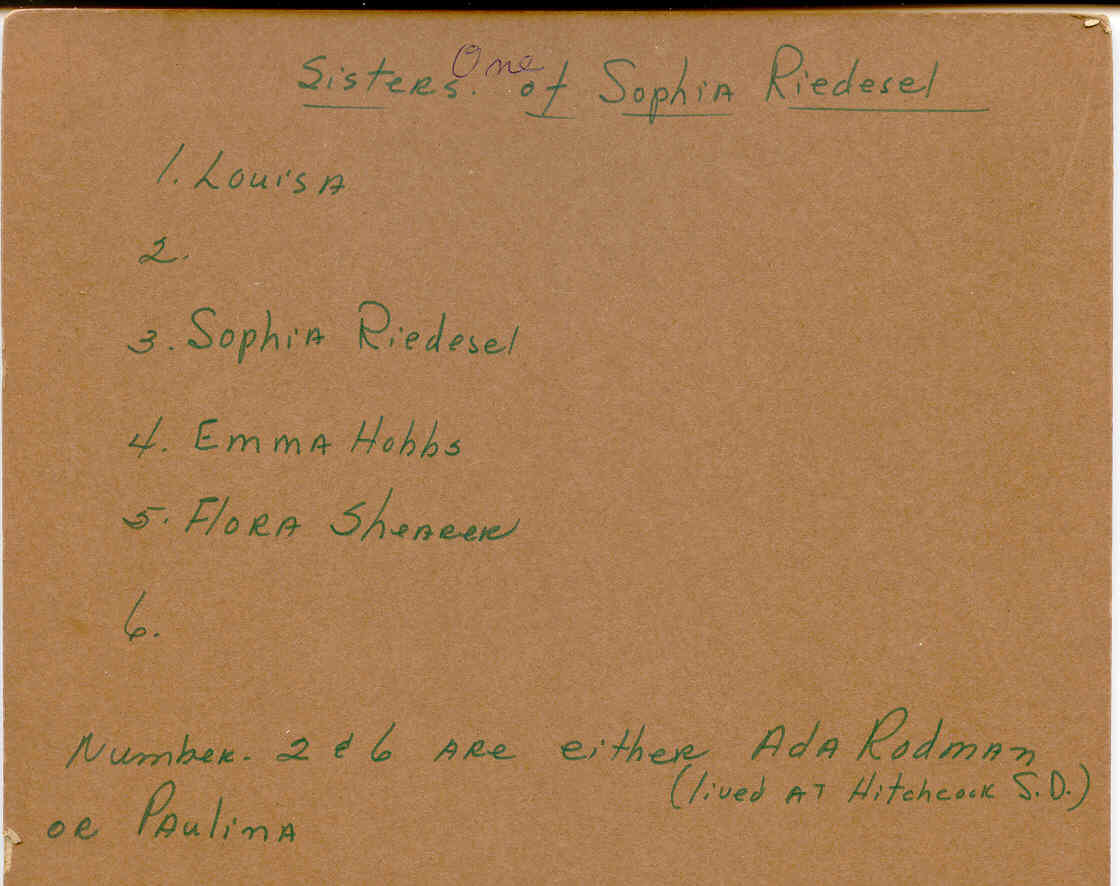 One
Sisters. of Sophia Riedesel
1. Louisa
2.
3. Sophia Riedesel
4. Emma Hobbs
5. Flora Shearer
6.
Number. 2 & 6 are either Ada Rodman
(lived at Hitchcock S.D.)
or Paulina